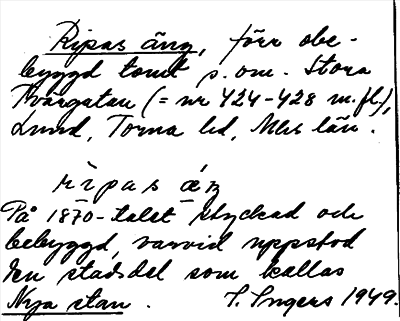 Ripas äng, förr obe-
byggd tomt s. om. Stora
Tvärgatan (= nr 424-428 m.fl.),
Lund, Torna hd, Mlhs län.
rìpas ä́ŋ
På 1870-talet styckad och
bebyggd, varvid uppstod
den stadsdel som kallas
Nya stan. S. Ingers 1949.